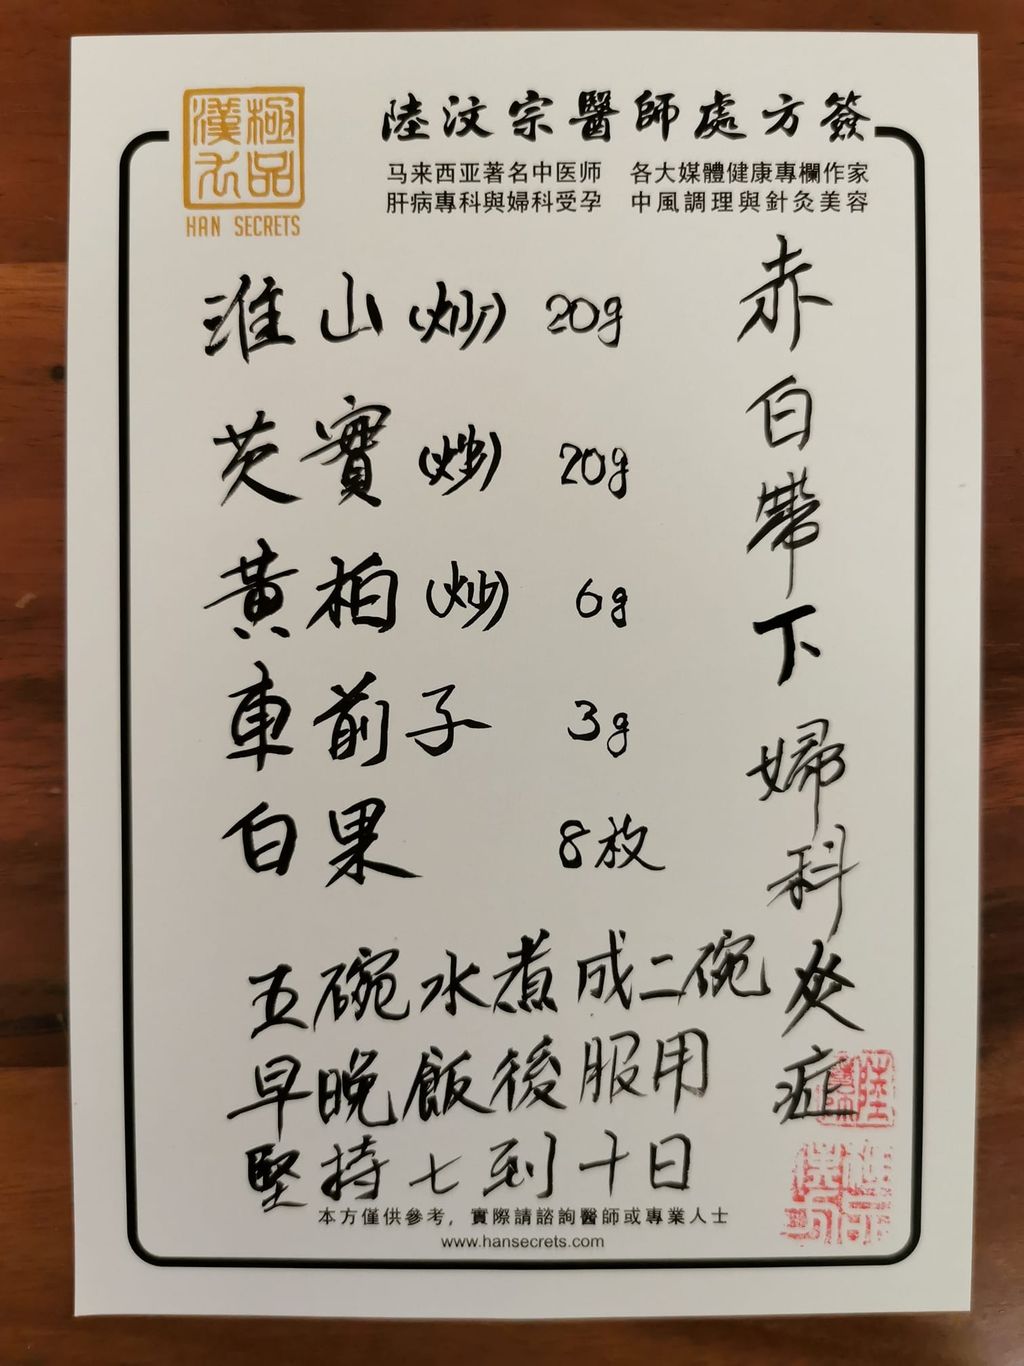 極品
漢方
HAN SECRETS
陸汶宗醫師處方簽
马来西亚著名中医师 各大媒體健康專欄作家
肝病專科與婦科受孕 中風調理與針灸美容
赤白帶下婦科炎症
淮山(炒) 20g
芡實(炒) 20g
黃柏(炒) 6g
車前子 3g
白果 8枚
五碗水煮成二碗
早晚飯後服用
堅持七到十日
本方僅供參考，實際請諮詢醫師或專業人士
www.hansecrets.com